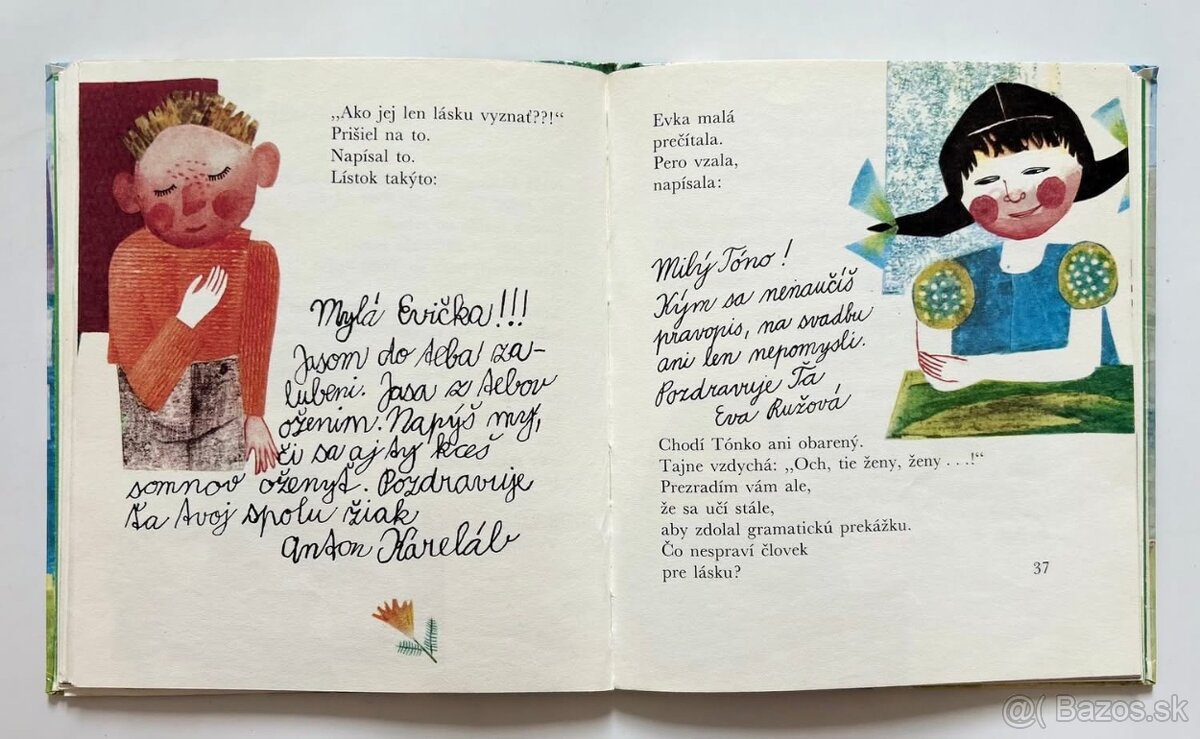 „Ako jej len lásku vyznať??!“
Prišiel na to.
Napísal to.
Lístok takýto:
Mylá Evička!!!
Jasom do teba za-
lubeni. Jasa z tebov
oženim. Napýš myť,
či sa aj ty kceš
somnov oženyt. Pozdravuje
ťa tvoj spolu žiak
Anton Kareláb
Evka malá
prečítala.
Pero vzala,
napísala:
Milý Tóno!
Kým sa nenaučíš
pravopis, na svadbu
ani len nepomysli.
Pozdravuje Ťa
Eva Ružová
Chodí Tónko ani obarený.
Tajne vzdychá: „Och, tie ženy, ženy . . .!“
Prezradím vám ale,
že sa učí stále,
aby zdolal gramatickú prekážku.
Čo nespraví človek
pre lásku?
37
@( Bazos.sk